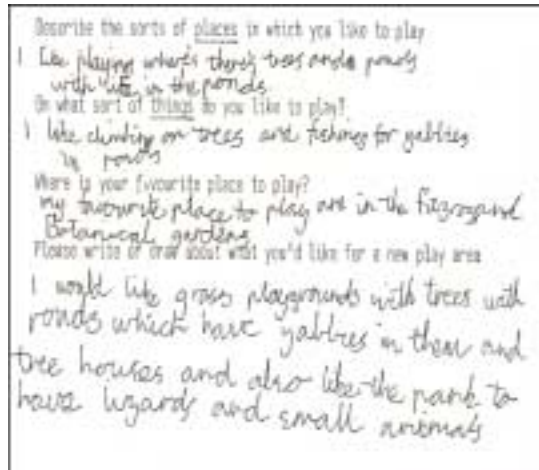 Describe the sorts of places in which you like to play
I like playing where's there's trees and ponds
with life in the ponds
On what sort of things do you like to play?
I like climbing on trees and fishing for yabbies
in ponds
Where is your favourite place to play?
my favourite place to play are in the Fitzroy and
Botanical gardens
Please write or draw about what you'd like for a new play area
I would like grass playgrounds with trees with
ponds which have yabbies in them and
tree houses and also like the park to
have lizards and small animals